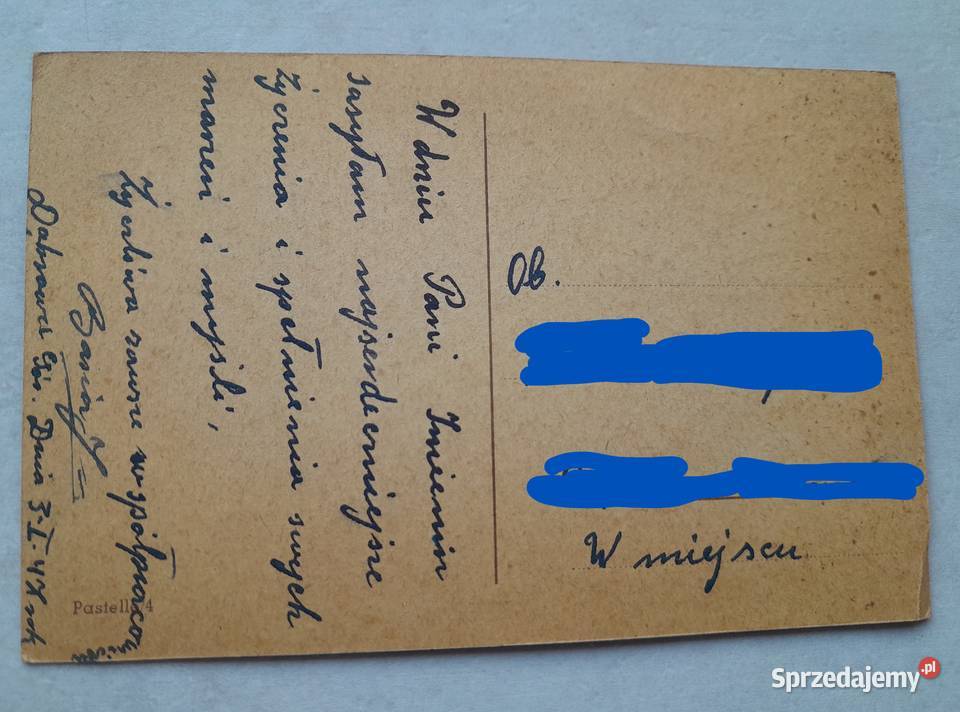 W dniu Pani Imienin
zasyłam najserdeczniejsze
życzenia i spełnienia swych
marzeń i myśli,
Życzliwa zawsze współpracow
Dąbrowa Gór. Dnia 3-I-47 rok
Pastello/4
W miejscu
Sprzedajemy.pl